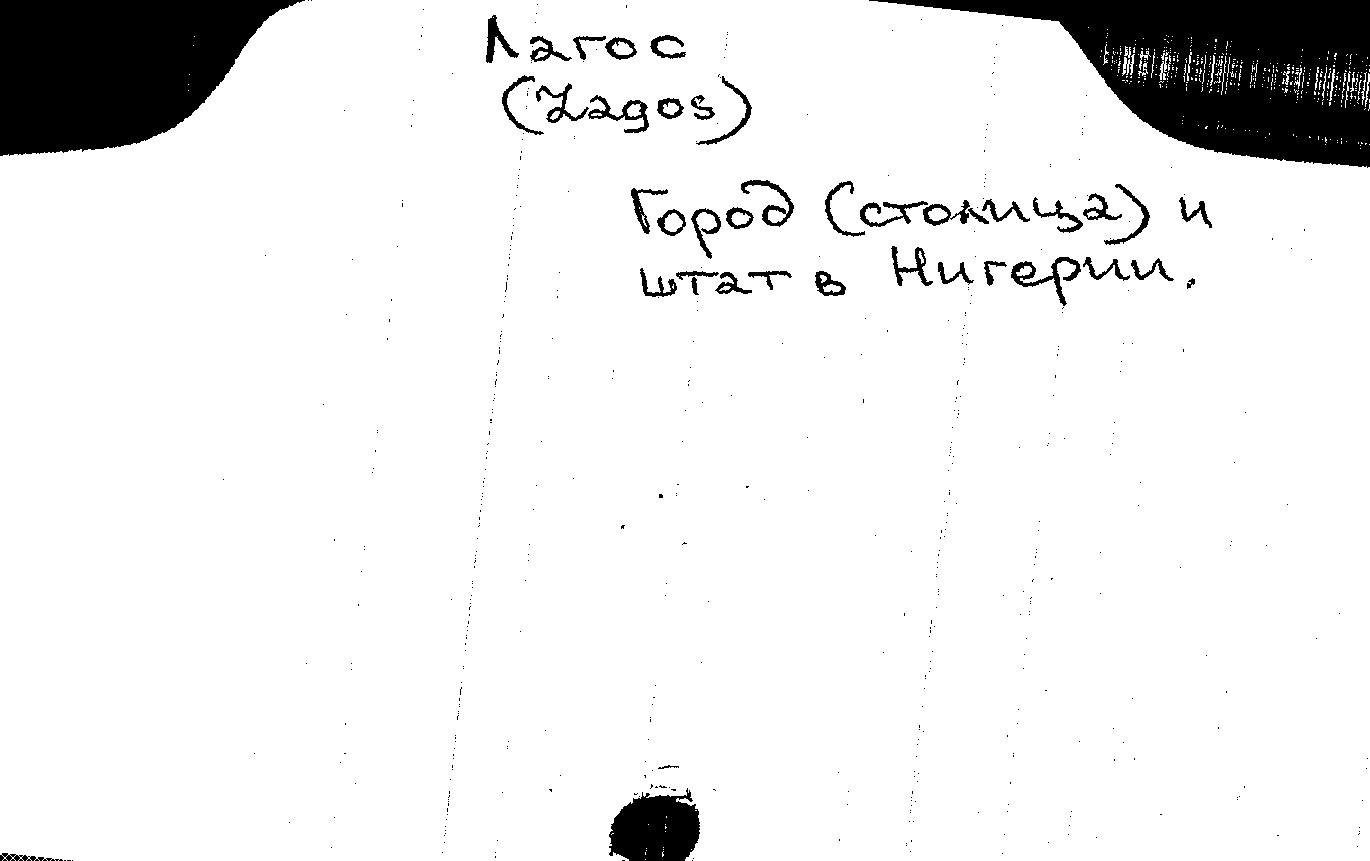 Лагос
(Lagos)
Город (столица) и
штат в Нигерии.